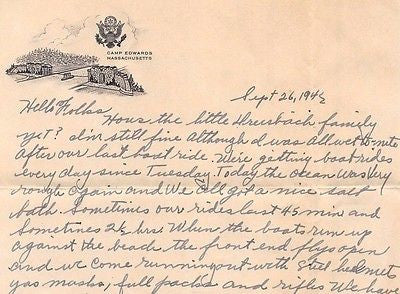 CAMP EDWARDS
MASSACHUSETTS
Sept 26, 194
Hello Folks
Hows the little Dresbach family
yet? I'm still fine although I was all wet to nite
after our last boat ride. We're getting boat rides
every day since Tuesday. Today the ocean was very
rough again and we all got a nice salt
bath. Sometimes our rides last 45 min and
Sometimes 2½ hrs. When the boats run up
against the beach the front end flys open
and we come running out with steel helmets
gas masks, full packs and rifles We have